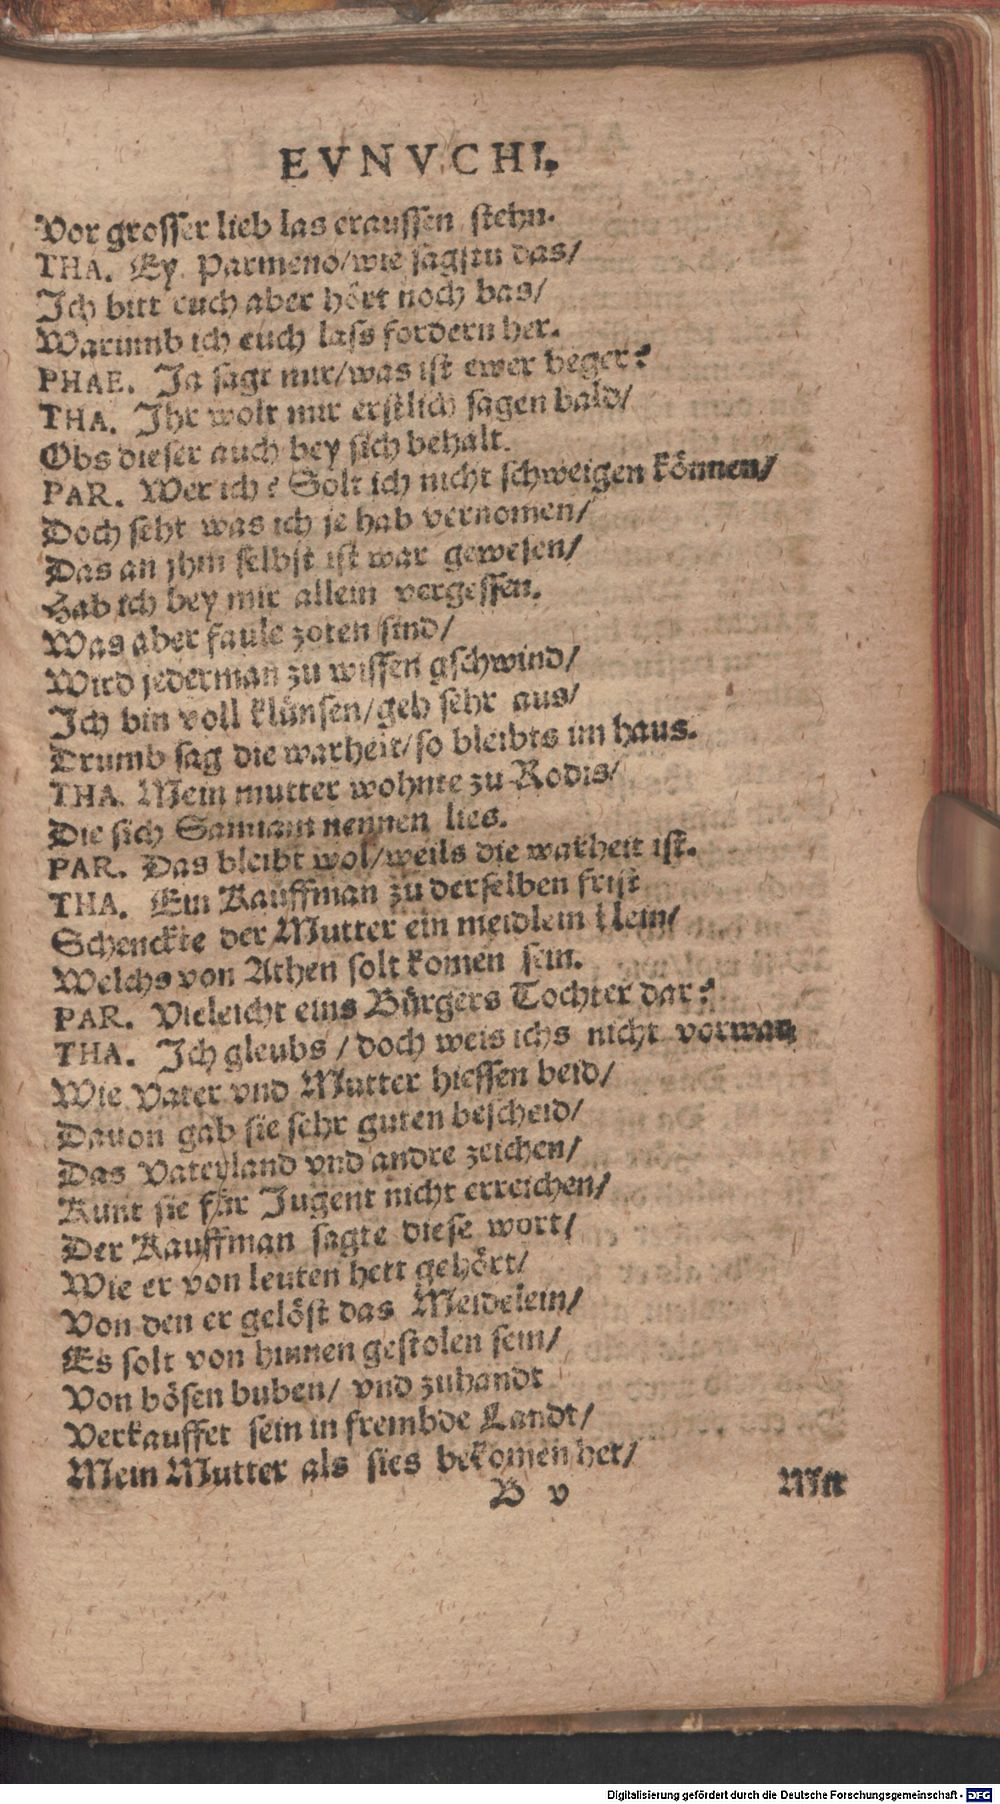 EVNVCHI.
Vor grosser lieb las eraussen stehn.
THA. Ey Parmeno/wie sagstu das/
Ich bitt euch aber hört noch bas/
Warumb ich euch lass fordern her.
PHAE. Ja sagt mir/was ist ewer beger?
THA. Ihr wolt mir erstlich sagen bald/
Obs dieser auch bey sich behalt.
PAR. Wer ich? Solt ich nicht schweigen können/
Doch seht was ich je hab vernomen/
Das an jhm selbst ist war gewesen/
Hab ich bey mir allein vergessen.
Was aber faule zoten sind/
Wird jederman zu wissen gschwind/
Ich bin voll klünsen/geh sehr aus/
Drumb sag die warheit/so bleibts im haus.
THA. Mein mutter wohnte zu Rodis/
Die sich Samiam nennen lies.
PAR. Das bleibt wol/weils die warheit ist.
THA. Ein Kauffman zu derselben frist
Schenckte der Mutter ein meidlein klein/
Welchs von Athen solt komen sein.
PAR. Vieleicht eins Bürgers Tochter dar?
THA. Ich gleubs / doch weis ichs nicht vorwar,
Wie Vater vnd Mutter hiessen beid/
Dauon gab sie sehr guten bescheid/
Das Vaterland vnd andre zeichen/
Kunt sie für Jugent nicht erreichen/
Der Kauffman sagte diese wort/
Wie er von leuten hett gehört/
Von den er gelöst das Meidelein/
Es solt von hinnen gestolen sein/
Von bösen buben/ vnd zuhandt
Verkauffet sein in frembde Landt/
Mein Mutter als sies bekomen het/
B v
Mit
Digitalisierung gefördert durch die Deutsche Forschungsgemeinschaft - DFG